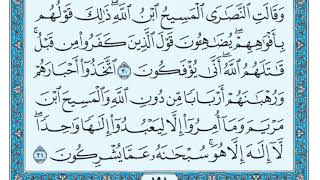 وَقَالَتِ ٱلنَّصَٰرَى ٱلْمَسِيحُ ٱبْنُ ٱللَّهِۖ ذَٰلِكَ قَوْلُهُم
بِأَفْوَٰهِهِمْۖ يُضَٰهِـُٔونَ قَوْلَ ٱلَّذِينَ كَفَرُوا۟ مِن قَبْلُۚ
قَٰتَلَهُمُ ٱللَّهُۚ أَنَّىٰ يُؤْفَكُونَ ٣٠ ٱتَّخَذُوٓا۟ أَحْبَارَهُمْ
وَرُهْبَٰنَهُمْ أَرْبَابًا مِّن دُونِ ٱللَّهِ وَٱلْمَسِيحَ ٱبْنَ
مَرْيَمَ وَمَآ أُمِرُوٓا۟ إِلَّا لِيَعْبُدُوٓا۟ إِلَٰهًا وَٰحِدًاۖ
لَّآ إِلَٰهَ إِلَّا هُوَۚ سُبْحَٰنَهُۥ عَمَّا يُشْرِكُونَ ٣١
١٩١